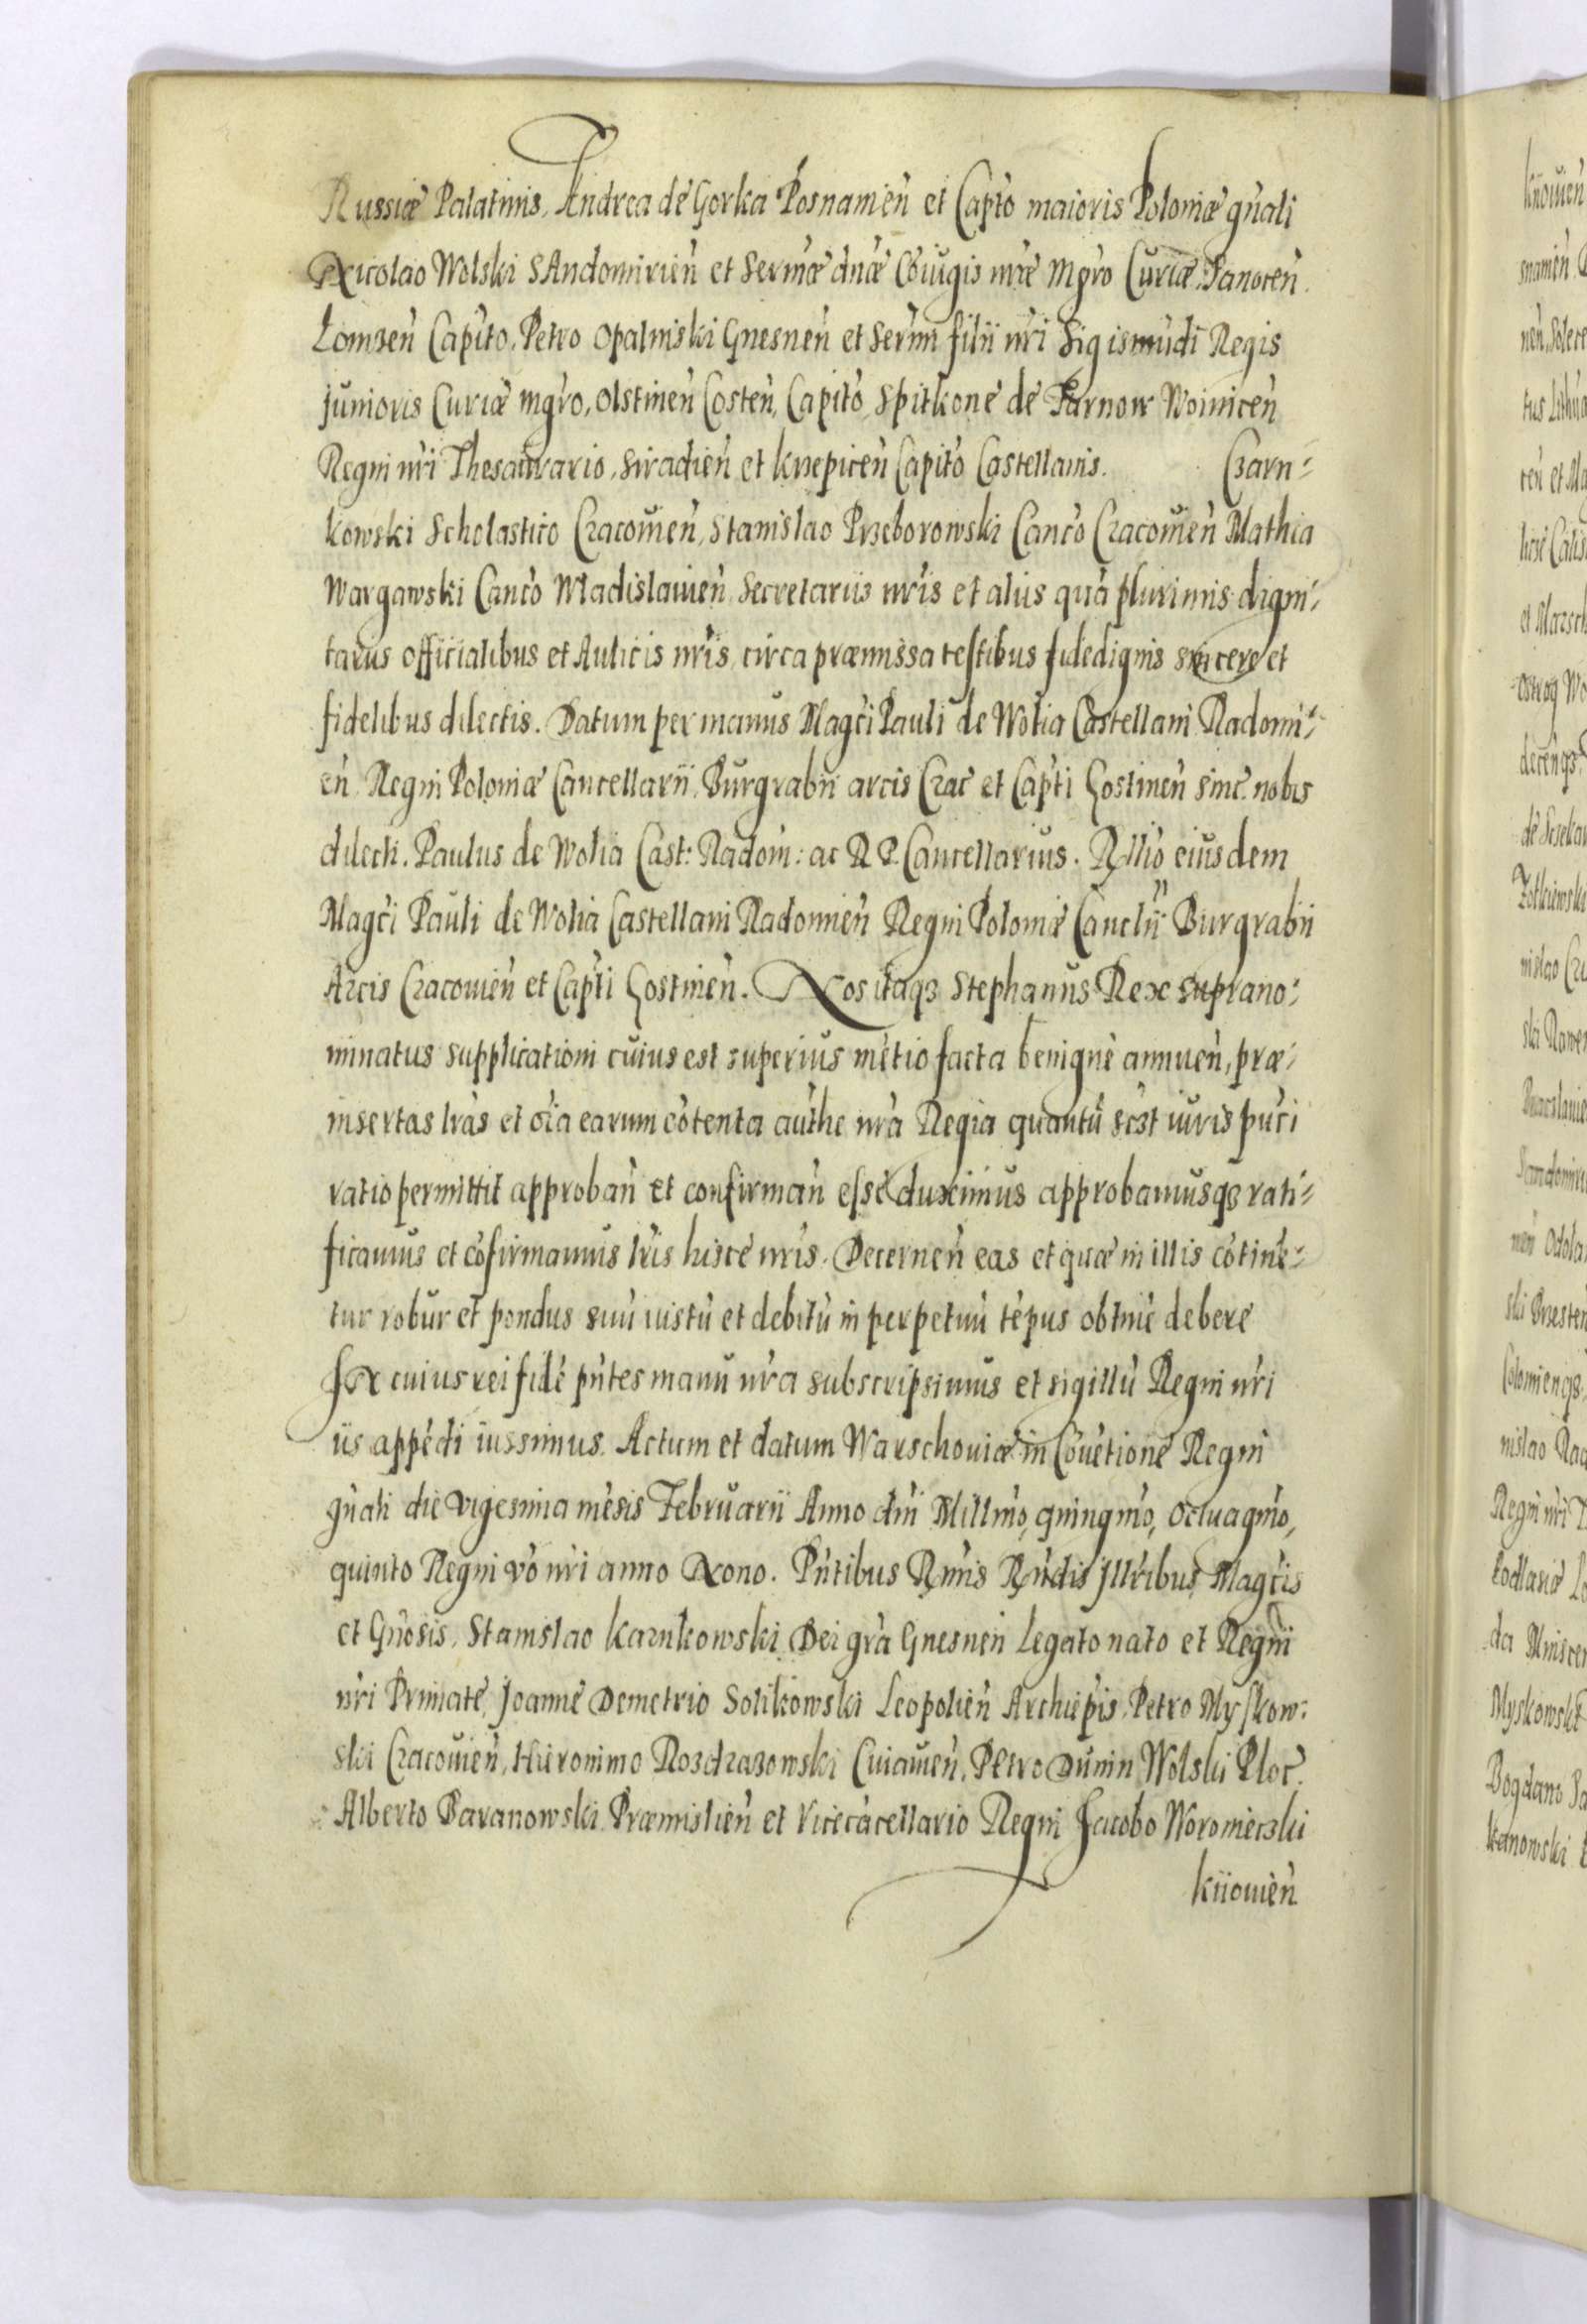 Russiæ Palatinis, Andrea de Gorka Posnanień et Capto maioris Poloniæ gnali
Nicolao Wolski SAndomirień et Sermæ dnæ Coiugis nræ Mgro Curiæ, Sanoceń
Lomzeń Capito, Petro Opalinski Gnesneń et Sermi filii nri Sigismudi Regis
junioris Curiæ mgro, Olstineń Costeń, Capito, Spitkone de Tarnow Woiniceń
Regni nri Thesaurario, Siradień et Krzepiceń Capito Castellanis. Czarn=
kowski Scholastico Cracovień, Stanislao Przeborowski Canco Cracovień Mathia
Wargawski Canco Wladislavień Secretariis nris et aliis qua plurimis digni=
tariis officialibus et Aulicis nris, circa præmissa testibus fidedignis sincere et
fidelibus dilectis. Datum per manus Magci Pauli de Wolia Castellani Radomi=
eń Regni Poloniæ Cancellarii, Burgrabii arcis Crac et Capti Gostineń sinc. nobis
dilecti. Paulus de Wolia Cast: Radom: ac R P. Cancellarius. Rllio eiusdem
Magci Pauli de Wolia Castellani Radomień Regni Poloniæ Canclii Burgrabii
Arcis Cracovień et Capti Gostineń. Nos itaq3 Stephanus Rex suprano=
minatus supplicationi cuius est superius metio facta benigne annueń, præ=
insertas lras et oia earum cotenta authe nra Regia quantu scst iuris puci
ratio permittit approbań et confirmań esse duximus approbamusq3 rati=
ficamus et cofirmamus lris hisce nris. Decerneń eas et quæ in illis cotine=
tur robur et pondus suu iustu et debitu in perpetuu tepus obtnie debere
In cuius rei fide pntes manu nra subscripsimus et sigillu Regni nri
iis appedi iussimus. Actum et datum Warschoviæ in Covetione Regni
gnali die vigesima mesis Februarii Anno dni Millmo, quingmo, octuagmo,
quinto Regni vo nri anno Nono. Pntibus Rmis Rndis Jllribus Magcis
et Gnosis. Stanislao Karnkowski Dei gra Gnesneń Legato nato et Regni
nri Primate, Joanne Demetrio Solikowski Leopolień Archiepis, Petro Myskow:
ski Cracovień, Hieronimo Rozdrazowski Cuiavień, Petro Dunin Wolski Ploc.
Alberto Baranowski Præmislień et Vicecacellario Regni Jacobo Woroniecki
kiiovień